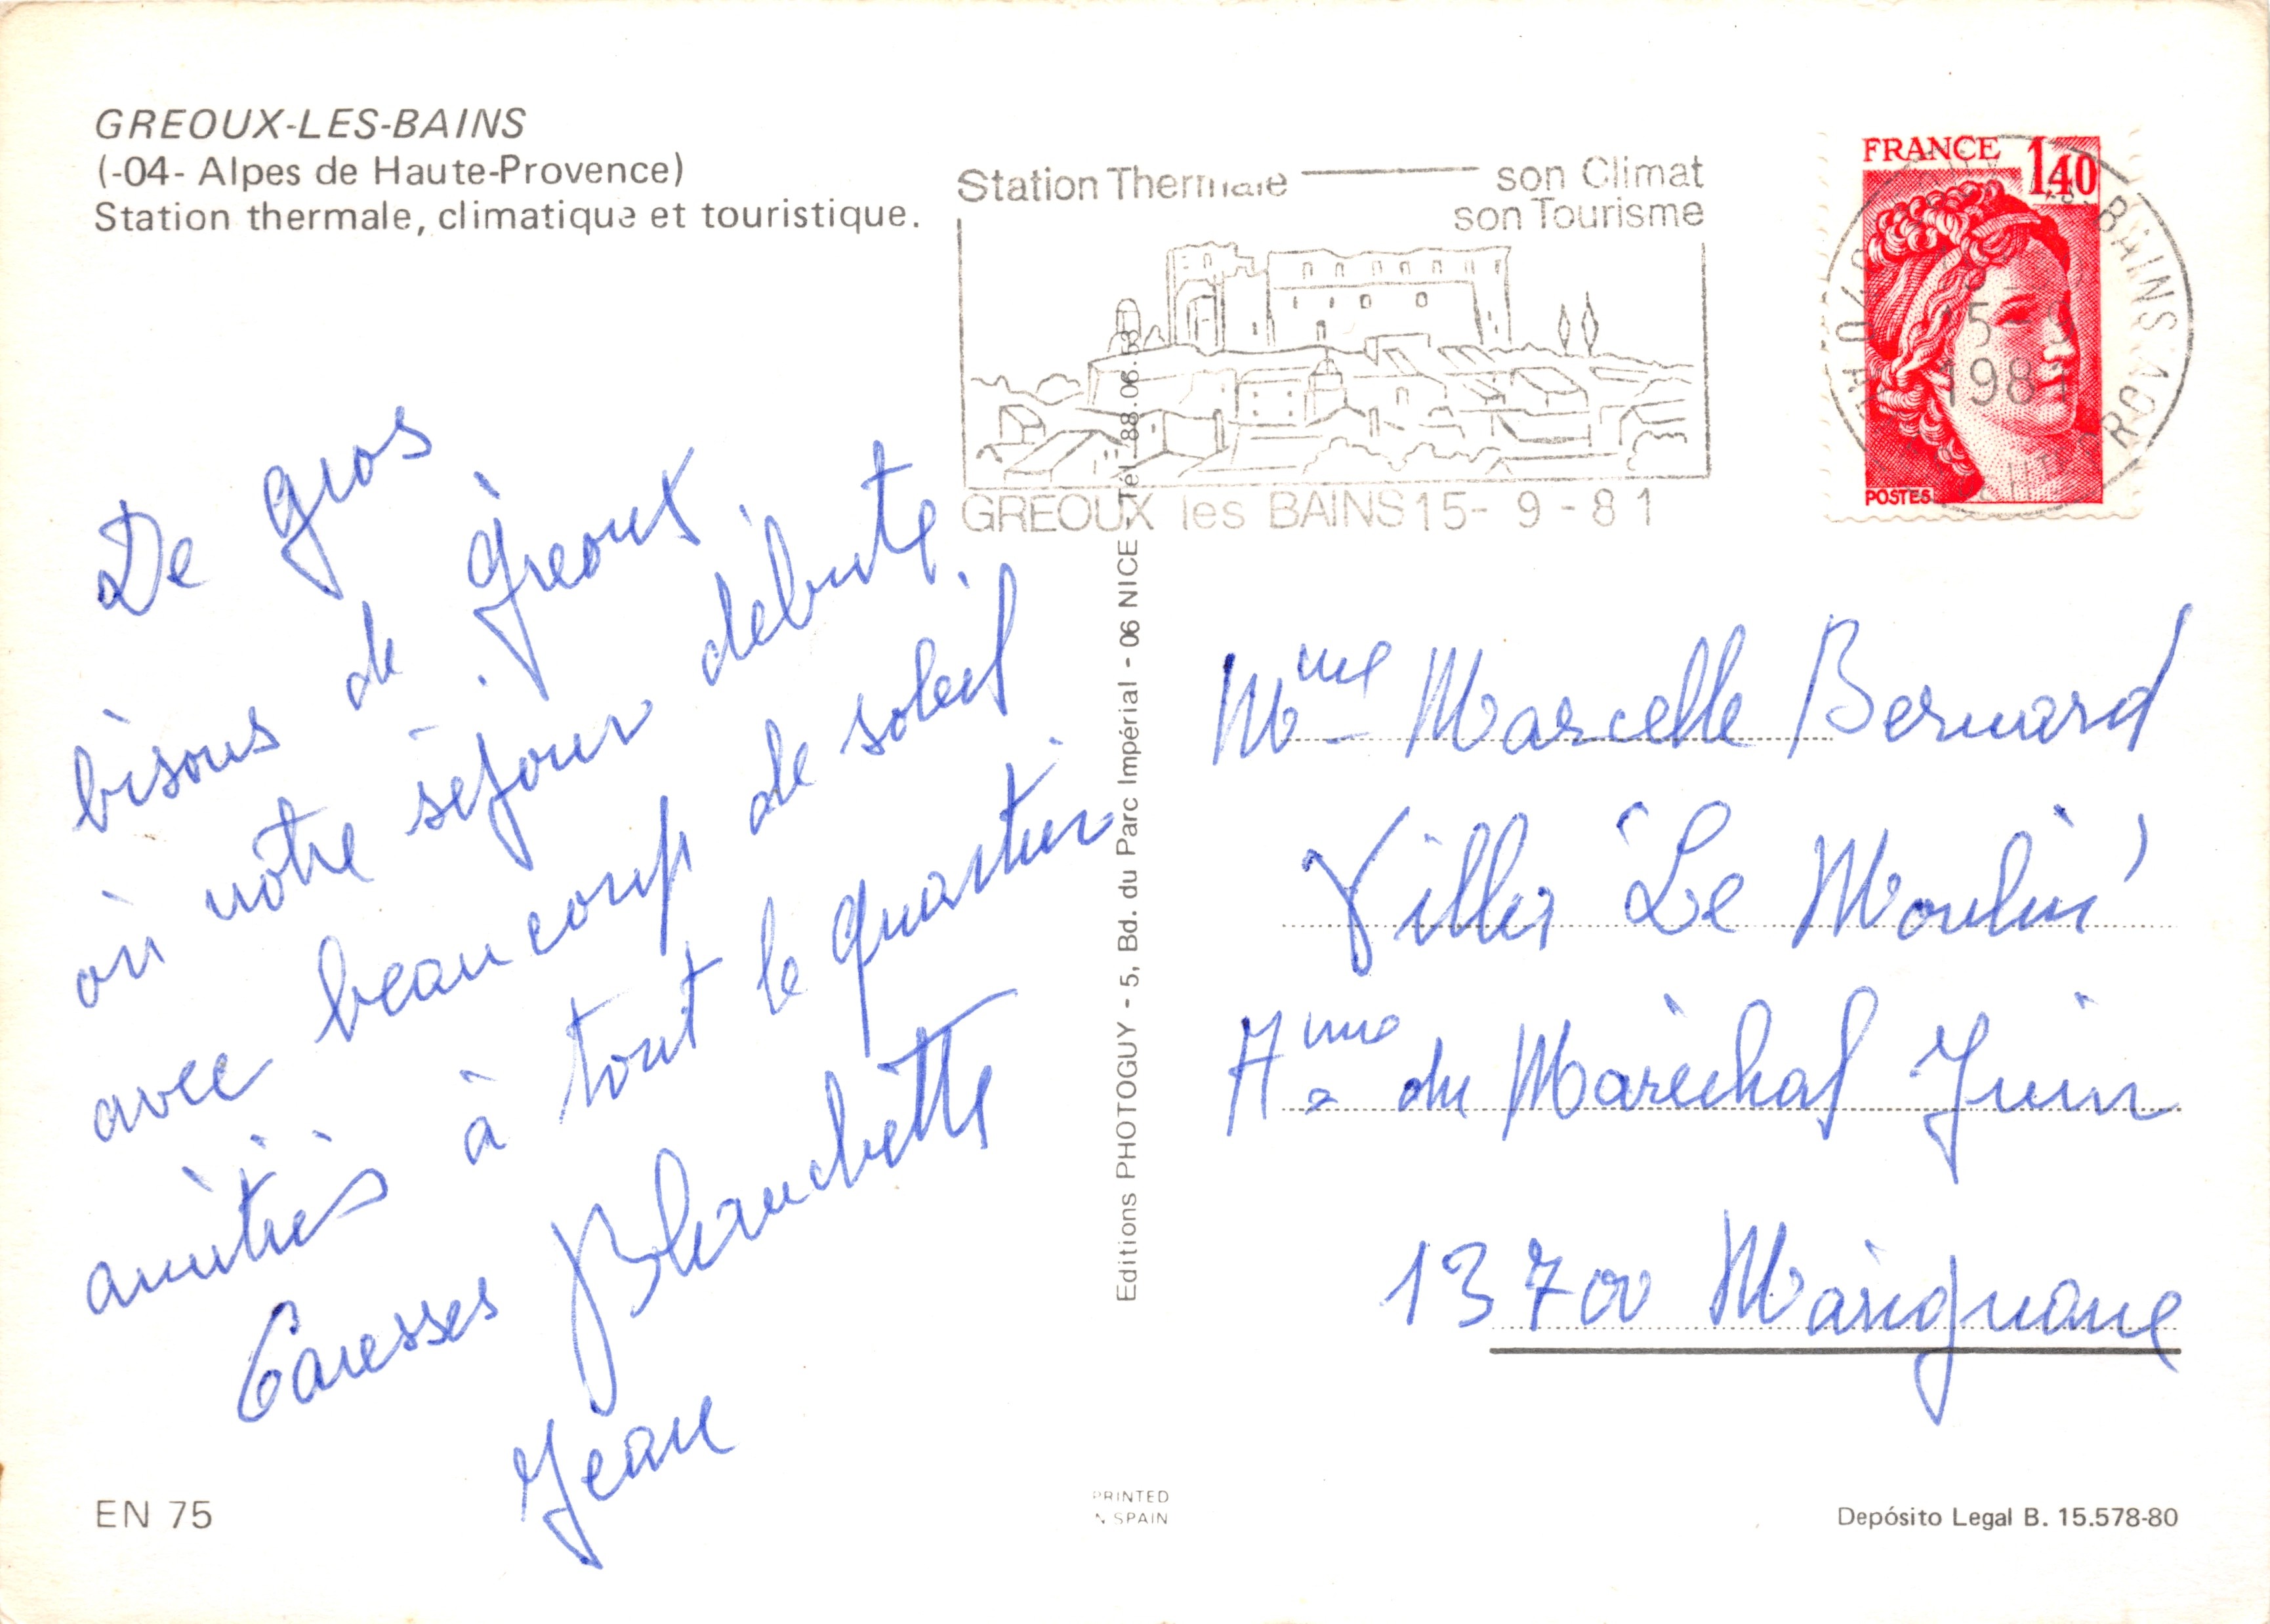 GREOUX-LES-BAINS
(-04- Alpes de Haute-Provence)
Station thermale, climatique et touristique.
Station Thermale son Climat
son Tourisme
GREOUX les BAINS 15- 9 -81
FRANCE 1,40
POSTES
BAINS
15-9
1981
De gros
bisous de Gréoux,
où nôtre séjour débute
avec beaucoup de soleil
amitiés à tout le quartier
Caresses Blanchette
Jean
Editions PHOTOGUY - 5, Bd. du Parc Impérial - 06 NICE - Tél. 88.06.53
Mme Marcelle Bernard
Villa "Le Moulin"
du Maréchal Juin
13700 Marignane
EN 75
PRINTED
IN SPAIN
Depósito Legal B. 15.578-80